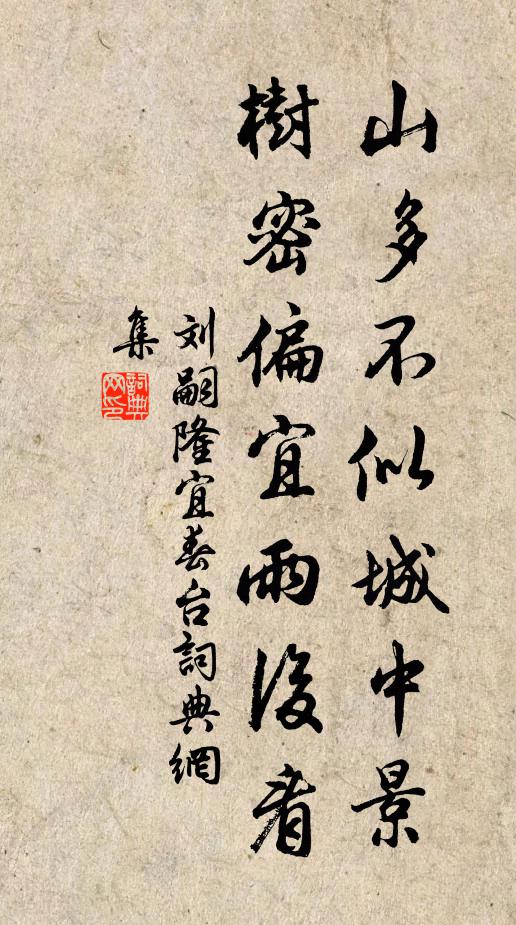 山多不似城中景
樹密偏宜雨後看
刘嗣隆宜春台詞典網
集
詞典
网印